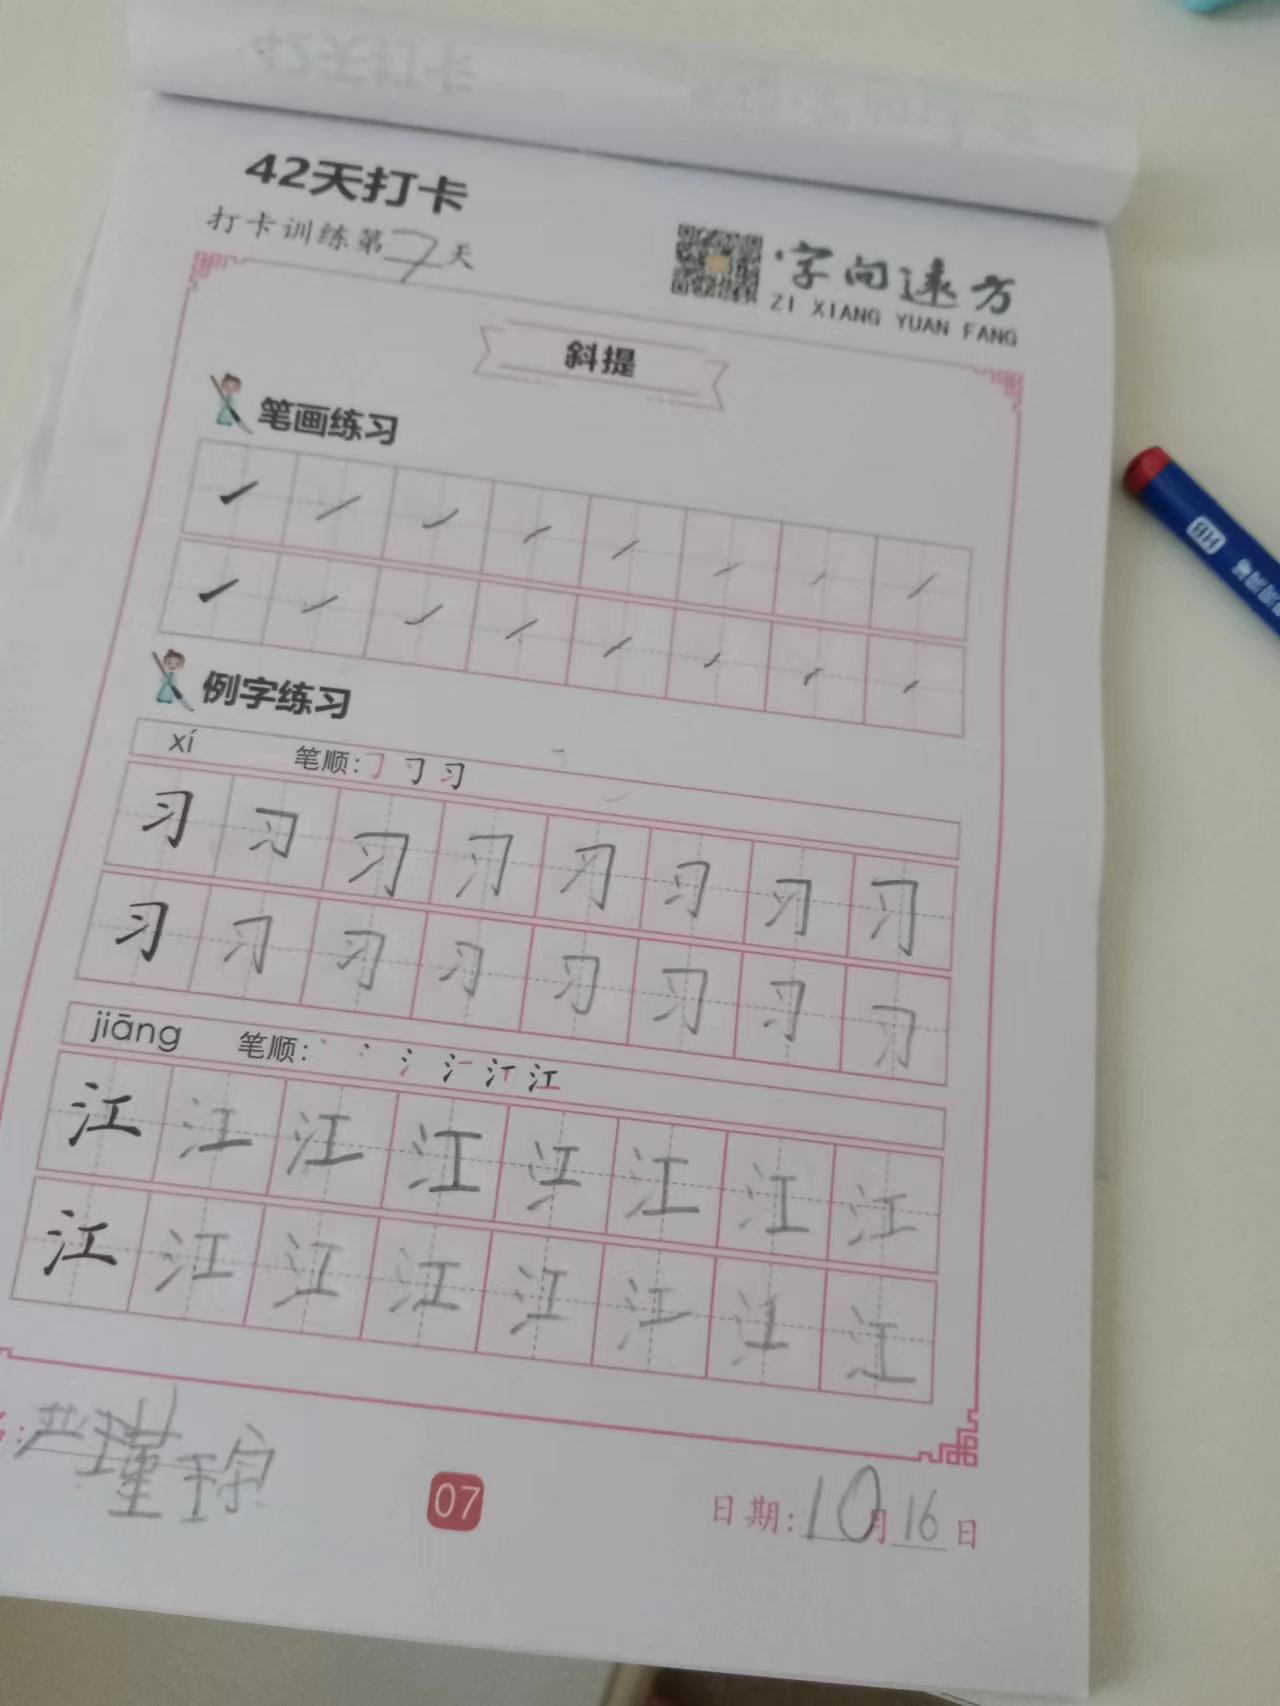 42天打卡
打卡训练第7天
字向远方
ZI XIANG YUAN FANG
斜提
笔画练习
例字练习
xí 笔顺: 习
习 习 习 习 习 习 习 习
习 习 习 习 习 习 习 习
jiāng 笔顺: 江
江 江 江 江 江 江 江 江
江 江 江 江 江 江 江 江
严瑾
07
日期: 10月16日
HB